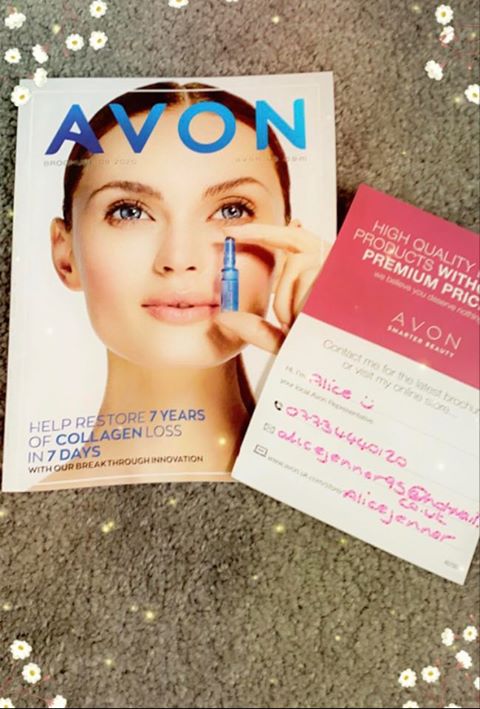 AVON
BROCHURE 09 2020
HELP RESTORE 7 YEARS
OF COLLAGEN LOSS
IN 7 DAYS
WITH OUR BREAKTHROUGH INNOVATION
HIGH QUALITY
PRODUCTS
PREMIUM
we believe you deserve
AVON
SMARTER BEAUTY
Contact me for the latest
or visit my online store...
Hi, I'm Alice
your local Avon Representative
07734440120
alicejennar95@hotmail.
co.uk
www.avon.uk.com/store/
Alicejennar